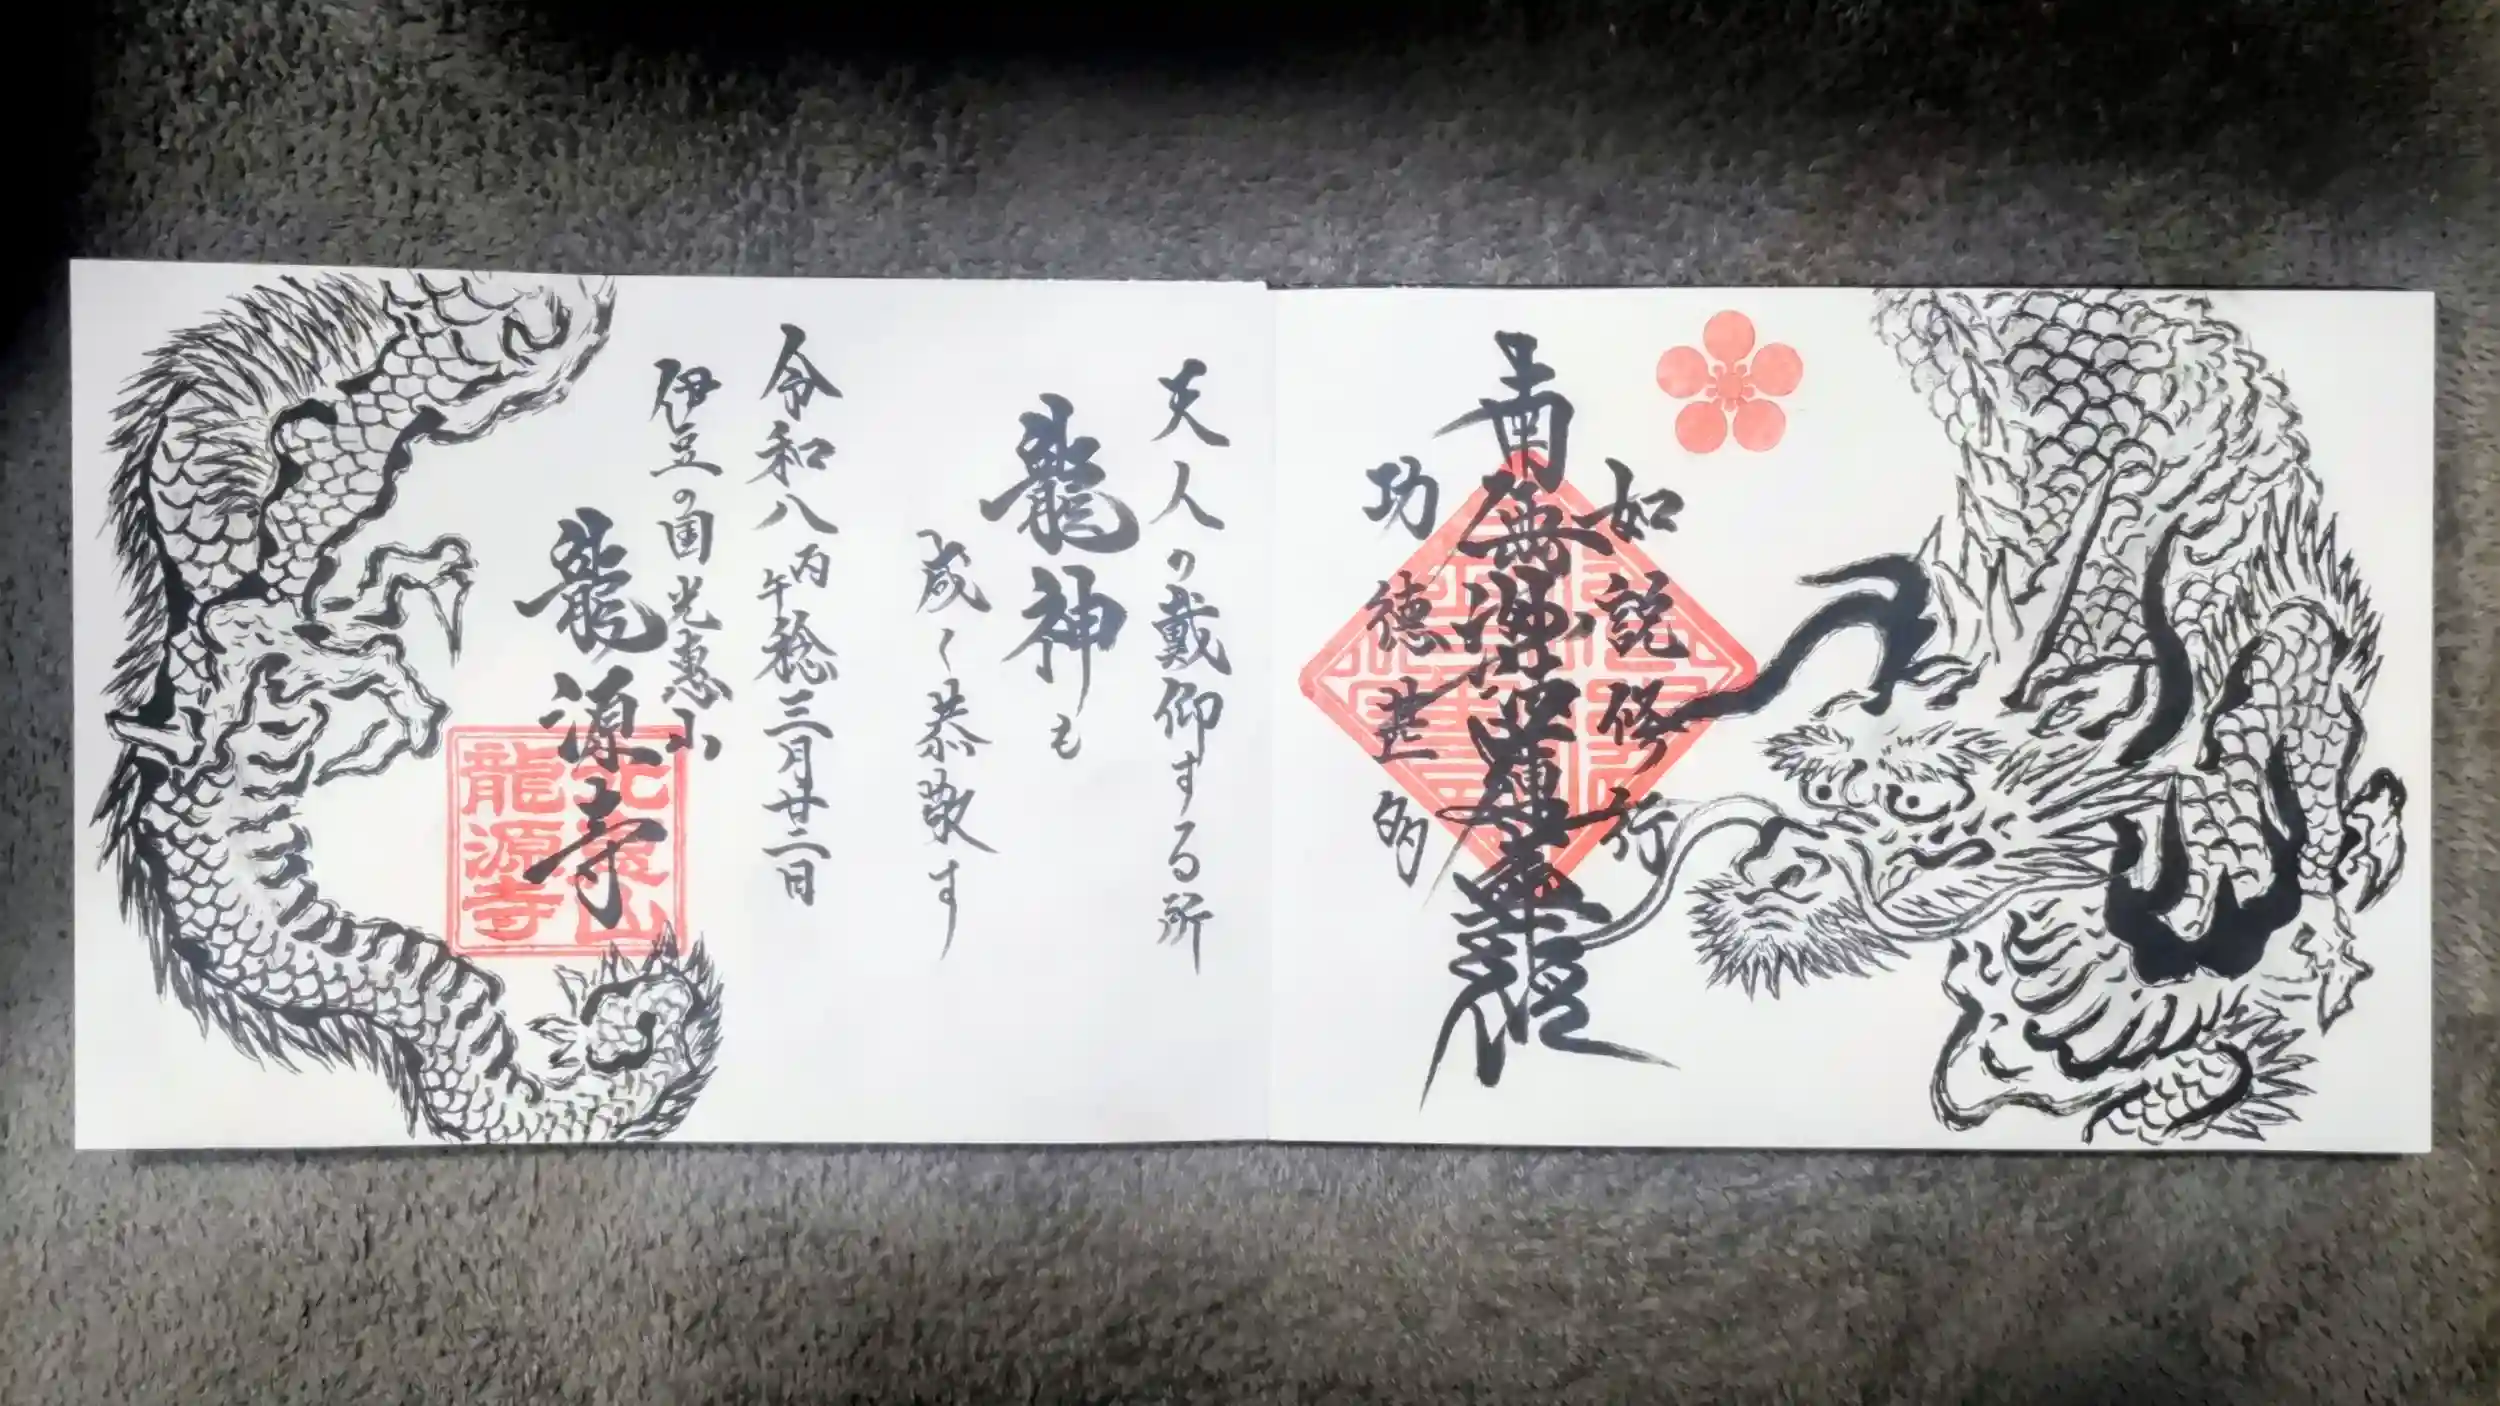 如説修行
南無妙法蓮華経
功徳甚多
天人の戴仰する所
龍神も
咸く恭敬す
令和八丙午稔三月廿二日
伊豆の国光恵山
龍源寺
龍源寺